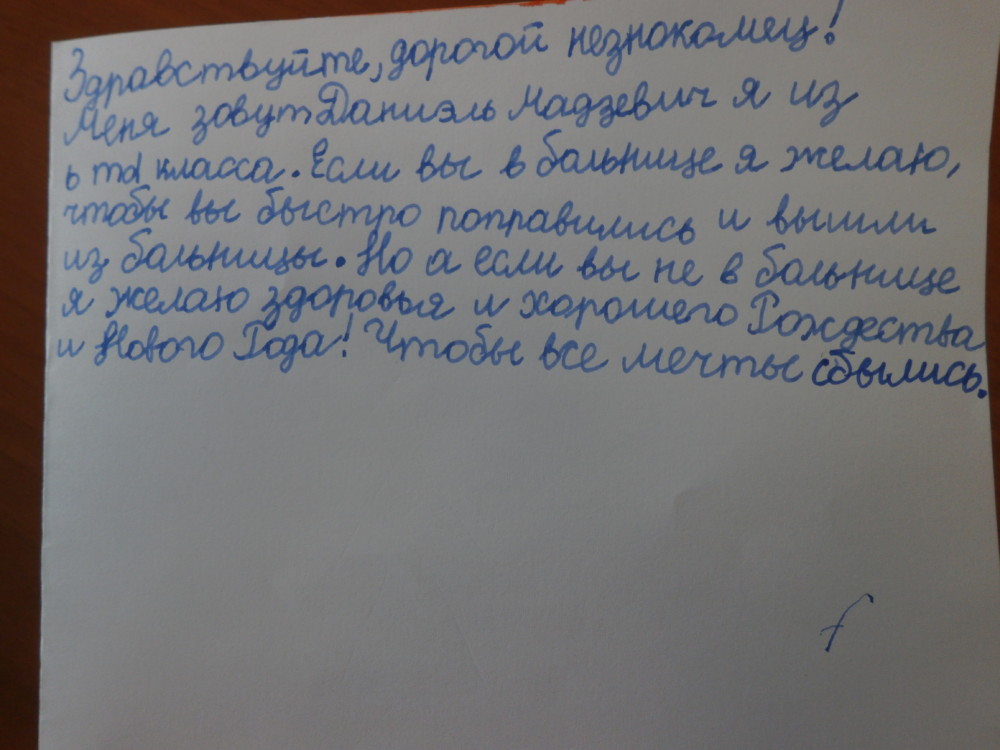 Здравствуйте, дорогой незнокомец!
Меня зовут Даниэль Мадзевич я из
ь md класса. Если вы в больнице я желаю,
чтобы вы быстро поправились и вышли
из больницы. Но а если вы не в больнице
я желаю здоровья и хорошего Рождества
и Нового Года! Чтобы все мечты сбылись.